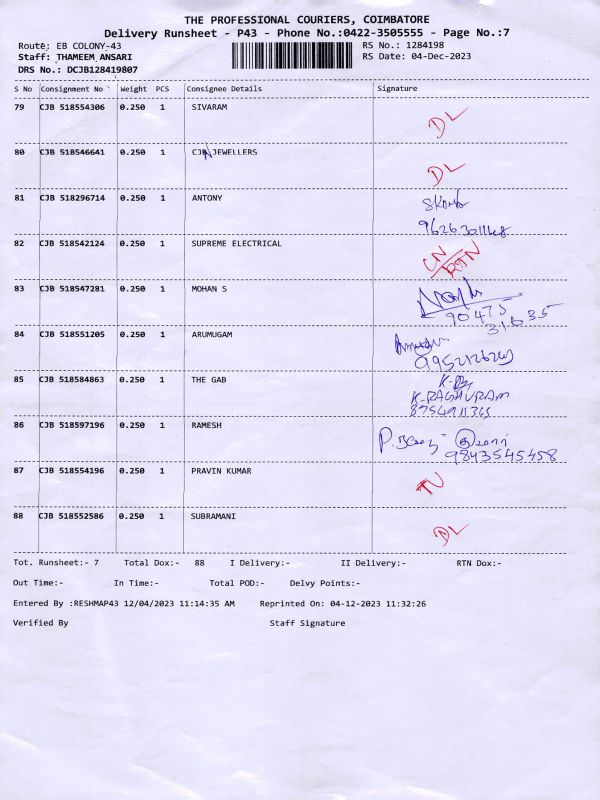 THE PROFESSIONAL COURIERS, COIMBATORE
Delivery Runsheet - P43 - Phone No.:0422-3505555 - Page No.:7
Route: EB COLONY-43 RS No.: 1284198
Staff: THAMEEM ANSARI RS Date: 04-Dec-2023
DRS No.: DCJB128419807
S No Consignment No Weight PCS Consignee Details Signature
79 CJB 518554306 0.250 1 SIVARAM DL
80 CJB 518546641 0.250 1 CJN JEWELLERS DL
81 CJB 518296714 0.250 1 ANTONY
82 CJB 518542124 0.250 1 SUPREME ELECTRICAL CN/RTN
83 CJB 518547281 0.250 1 MOHAN S
90475
31635
84 CJB 518551205 0.250 1 ARUMUGAM
85 CJB 518584863 0.250 1 THE GAB
K-RAGHURAM
8754911365
86 CJB 518597196 0.250 1 RAMESH
9843545458
87 CJB 518554196 0.250 1 PRAVIN KUMAR
88 CJB 518552586 0.250 1 SUBRAMANI DL
Tot. Runsheet:- 7 Total Dox:- 88 I Delivery:- II Delivery:- RTN Dox:-
Out Time:- In Time:- Total POD:- Delvy Points:-
Entered By :RESHMAP43 12/04/2023 11:14:35 AM Reprinted On: 04-12-2023 11:32:26
Verified By Staff Signature